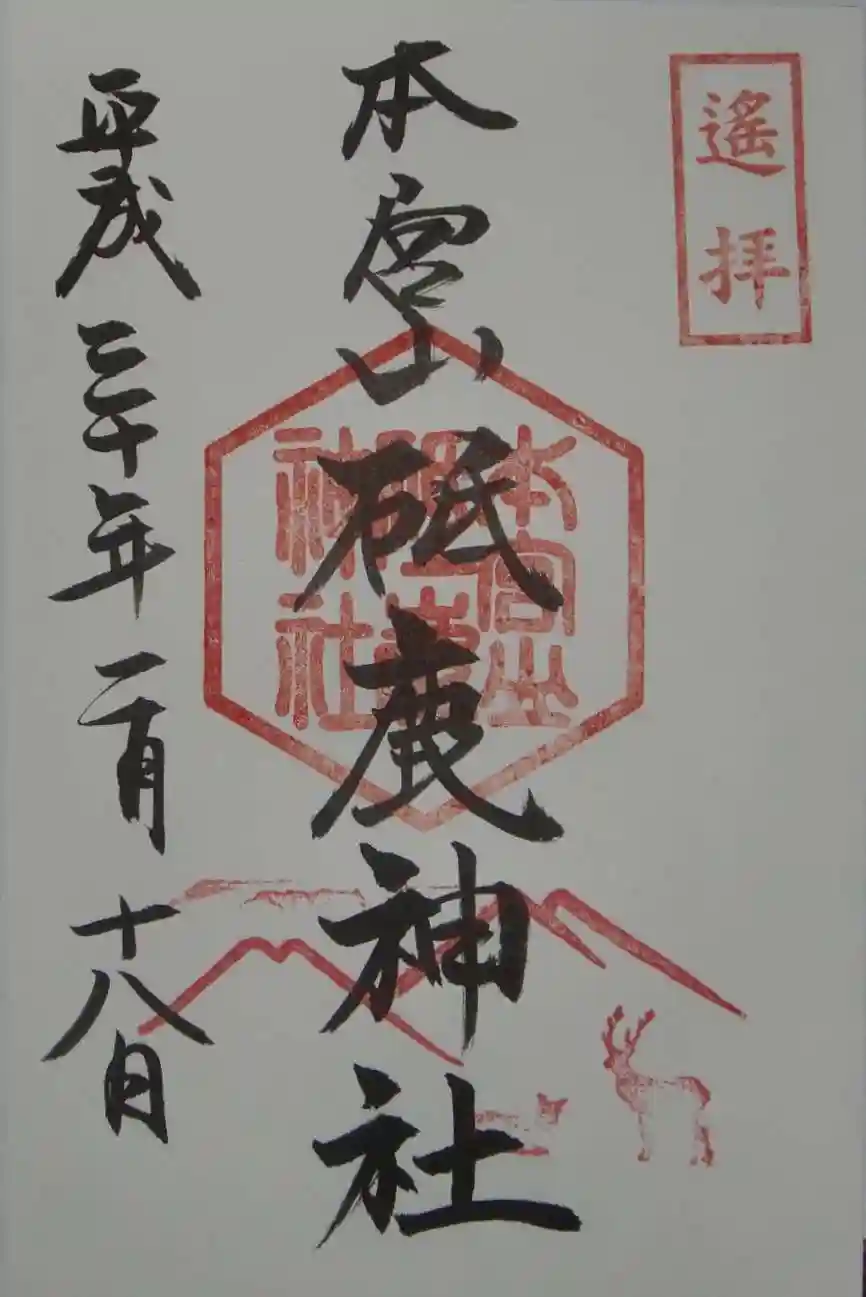 遙拝
本宮山砥鹿神社
本宮山
砥鹿
神社
平成三十年二月十八日